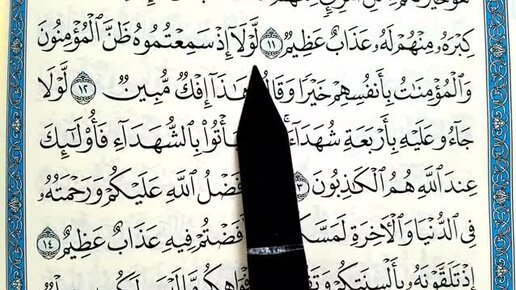 كِبْرَهُۥ مِنْهُمْ لَهُۥ عَذَابٌ عَظِيمٌ ١١ لَّوْلَآ إِذْ سَمِعْتُمُوهُ ظَنَّ ٱلْمُؤْمِنُونَ
وَٱلْمُؤْمِنَٰتُ بِأَنفُسِهِمْ خَيْرًا هَٰذَآ إِفْكٌ مُّبِينٌ ١٢ لَّوْلَا
جَآءُو عَلَيْهِ بِأَرْبَعَةِ شُهَدَآءَ بِٱلشُّهَدَآءِ فَأُو۟لَٰٓئِكَ
عِندَ ٱللَّهِ هُمُ ٱلْكَٰذِبُونَ فَضْلُ ٱللَّهِ عَلَيْكُمْ وَرَحْمَتُهُۥ
فِى ٱلدُّنْيَا وَٱلْءَاخِرَةِ أَفَضْتُمْ فِيهِ عَذَابٌ عَظِيمٌ ١٤
إِذْ تَلَقَّوْنَهُۥ بِأَلْسِنَتِكُمْ